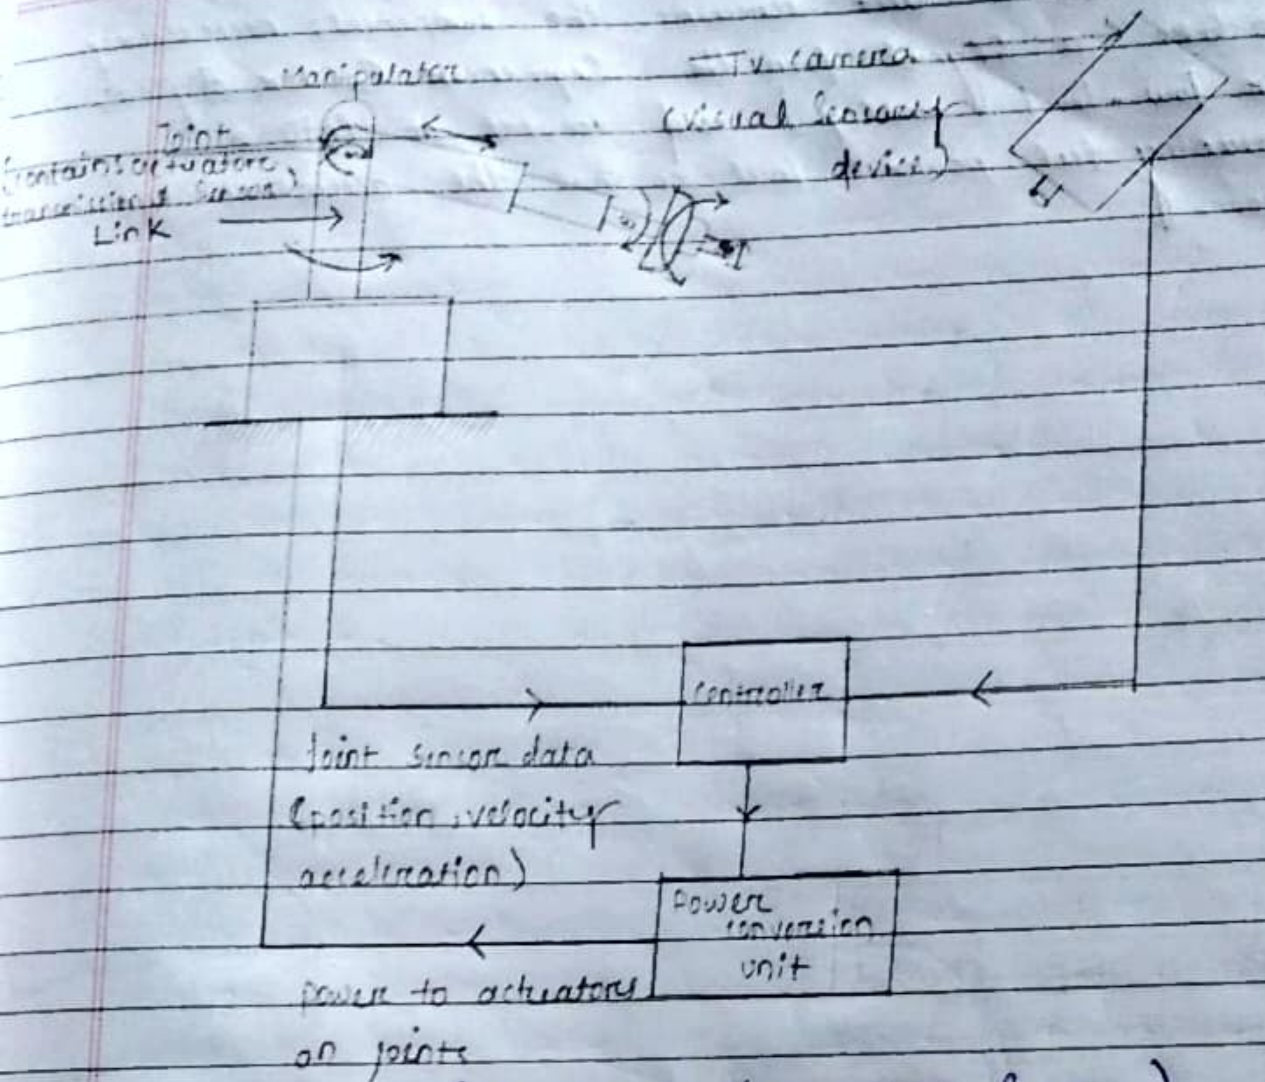 Manipulator
TV camera
(visual Sensory
device)
Joint
(contains actuators
transmission & sensor)
Link
controller
Joint sensor data
(position, velocity
acceleration)
Power
conversion
unit
power to actuators
on joints